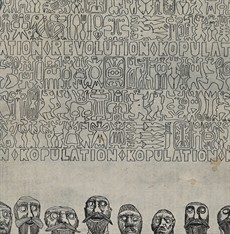 ATION◊REVOLUTION◊KOPULATI
N◊KOPULATION◊KOPULATION